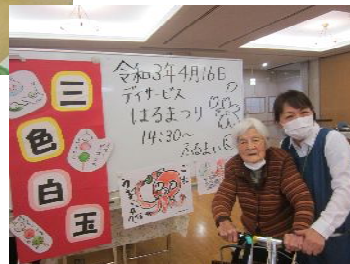 三
色
白
玉
令和3年4月16日
デイサービス
はるまつり
14:30～